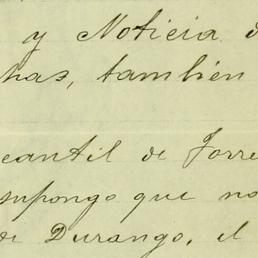 y Noticia d
has, también
cantil de Torre
supongo que no
de Durango, el